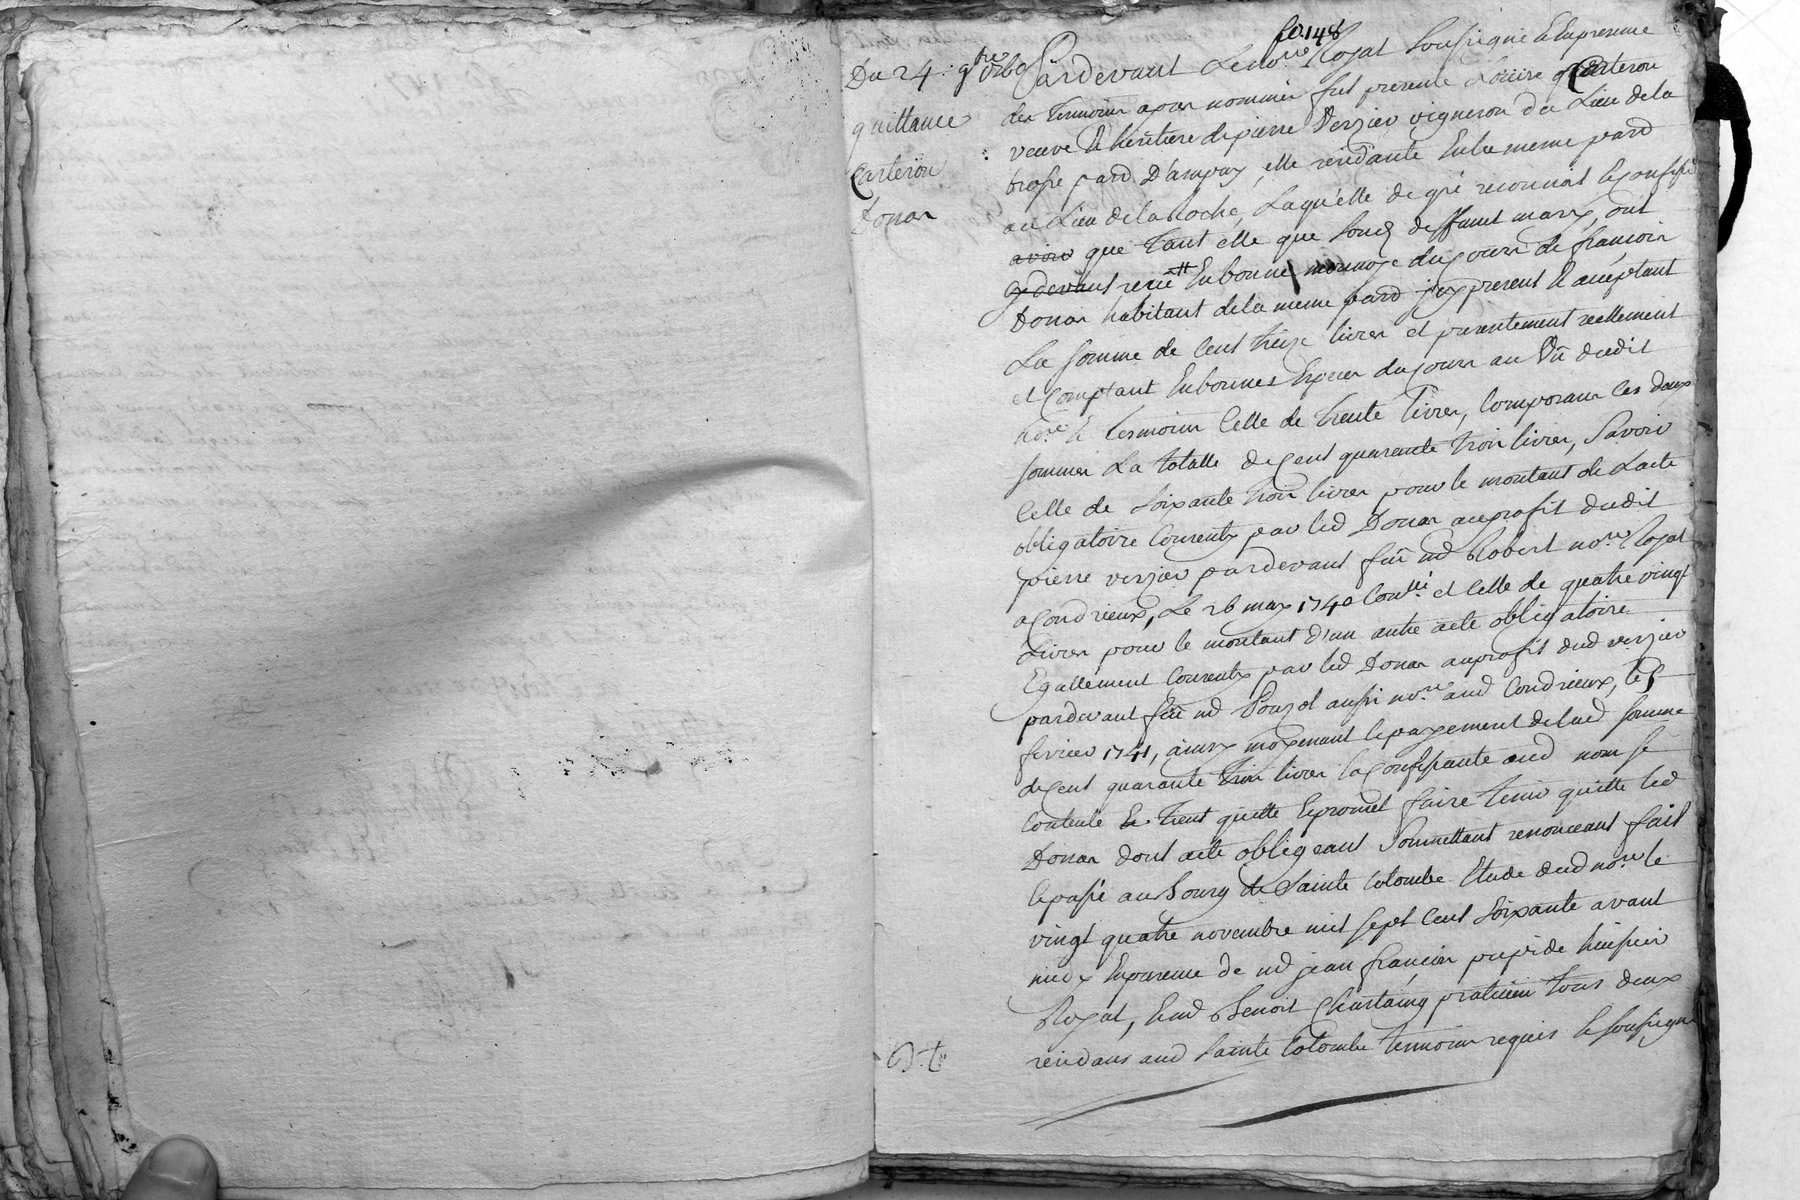 fo 148
Du 24: 9bre 1760
quittance
Carteron
Donar
Pardevant Le nore Royal Soussigné & En presence
des temoins apres nommés fut presente Louise Carteron
veuve & heritiere de pierre Verzier vigneron du Lieu dela
brosse parr. D'ampuy, elle residante En la meme parr
au Lieu dela roche, Laquelle de gré reconnoit & confesse
avoir que tant elle que Sond deffunt mary, ont
cydevant reçu En bonne monnoye du cours de francois
Donar habitant dela meme parr icy present & acceptant
La somme de Cent treize livres et presentement reellement
et comptant En bonnes Especes du cours au Vû dudit
nore & temoins Celle de trente livres, Composant les deux
sommes La totalle de Cent quarante trois livres, Savoir
Celle de soixante trois livres pour le montant de L'acte
obligatoire Consenty par led Donar au profit dudit
pierre verzier pardevant feu me Robert nore Royal
a Condrieux, Le 26 may 1740 Conllé et Celle de quatre vingt
Livres pour le montant d'un autre acte obligatoire
Egallement Consenty par led Donar au profit dud verzier
pardevant feu me Pouzol aussi nore aud Condrieux, le
fevrier 1741, ainsy moyenant le payement de lad somme
de Cent quarante trois livres la Confessante aud nom se
Contente & tient quitte & promet faire tenir quitte led
Donar dont acte obligeant Soumettant renonceant fait
& passé au Bourg de Sainte Colombe Etude dud nore le
vingt quatre novembre mil sept Cent soixante avant
midy En presence de me jean francois huissier
Royal, & me Benoit Chastaing praticien tous deux
residans aud Sainte Colombe temoins requis & soussignés